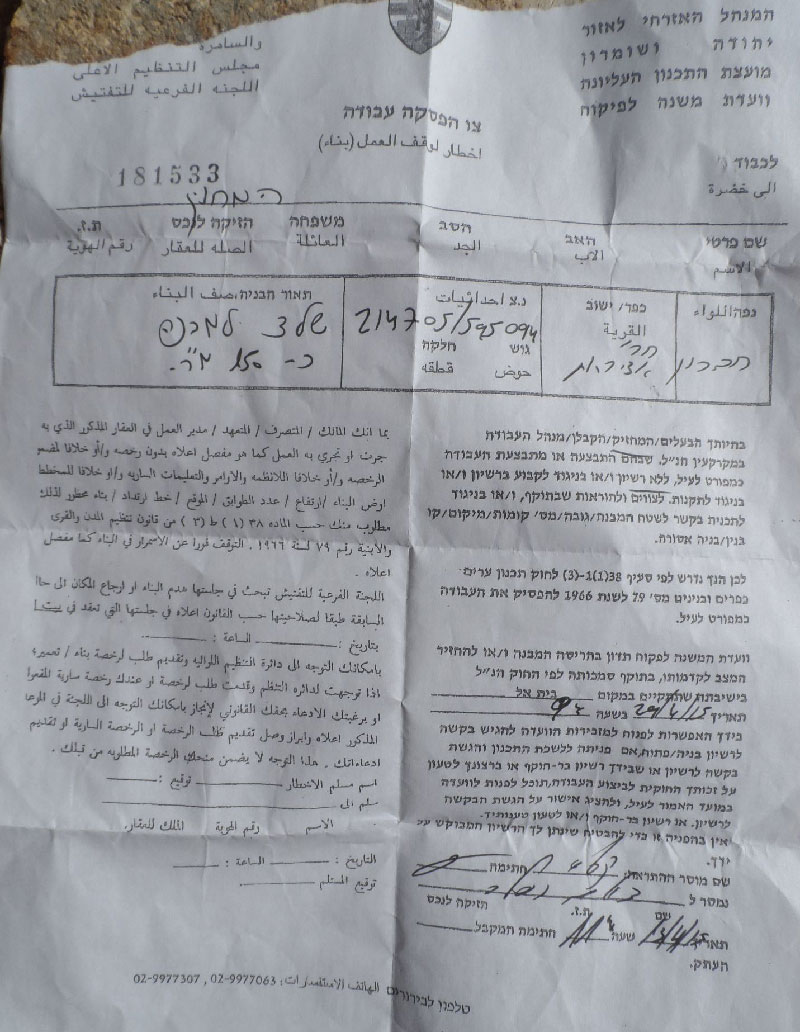 המנהל האזרחי לאזור
יהודה ושומרון
מועצת התכנון העליונה
וועדת משנה לפיקוח
والسامرة
مجلس التنظيم الاعلى
اللجنه الفرعيه للتفتيش
צו הפסקה עבודה
اخطار لوقف العمل (بناء)
181533
לכבוד
الى حضرة
שם פרטי האב הסב משפחה הזיקה לנכס ת.ז.
الاسم الاب الجد العائلة الصله للعقار رقم الهوية
נפה اللواء
חברון
כפר/ישוב
القرية
נ.צ احداثيات
214705/595094
גוש חלקה
حوض قطعه
תאור הבניה, صف البناء
כ- 150 מ"ר.
בהיותך הבעלים/המחזיק/הקבלן/מנהל העבודה
במקרקעין הנ"ל, שבהם התבצעה או מתבצעת העבודה
כמפורט לעיל, ללא רשיון ו/או בניגוד לקבוע ברשיון ו/או
בניגוד לתקנות, לצווים ולהוראות שבתוקף, ו/או בניגוד
לתכנית בקשר לשטח המבנה/גובה/מס' קומות/מיקום/קו
בנין/בניה אסורה.
לכן הנך נדרש לפי סעיף 38(1)-(3) לחוק תכנון ערים
כפרים ובנינים מס' 79 לשנת 1966 להפסיק את העבודה
כמפורט לעיל.
וועדת המשנה לפקוח תדון בהריסה המבנה ו/או להחזיר
המצב לקדמותו, בתוקף סמכותה לפי החוק הנ"ל
בישיבתה שתתקיים במקום בית אל
תאריך 29/4/15 בשעה
בידך האפשרות לפנות למזכירות הוועדה להגיש בקשה
לרשיון בניה/פתוח, אם פניתה ללשכת התכנון והגשת
בקשה לרשיון או שבידך רשיון בר-תוקף או ברצונך לטעון
על זכותך החוקית לביצוע העבודה, תוכל לפנות לוועדה
במועד האמור לעיל, ולהציג אישור על הגשת הבקשה
לרשיון. או רשיון בר-תוקף ו/או לטעון טענותיך.
אין בהפניה זו כדי להבטיח שינתן לך הרשיון המבוקש על
ידך.
שם מוסר ההתראה חתימה
נמסר ל
שם ת.ז. הזיקה לנכס
תאריך שעה חתימה המקבל
העתק.
بما انك المالك / المتصرف / المتعهد / مدير العمل في العقار المذكور الذي به
جرت او تجري به العمل كما هو مفصل اعلاه بدون رخصه و/أو خلافا
الرخصه و/أو خلافا للانظمه والاوامر والتعليمات الساريه و/او خلافا للمخطط
ارض البناء /ارتفاع / عدد الطوابق / الموقع / خط ارتداد / بناء محظور لذلك
مطلوب منك حسب الماده ٣٨ (١) ط (٣) من قانون تنظيم المدن والقرى
والأبنية رقم ٧٩ لسنة ١٩٦٦ . التوقف فورا عن الاستمرار في البناء كما مفصل
اعلاه .
اللجنه الفرعية للتفتيش تبحث في جلستها هدم البناء او ارجاع المكان الى
السابقة طبقا لصلاحيتها حسب القانون اعلاه في جلستها التي تعقد في
بتاريخ : الساعة :
بامكانك التوجه الى دائرة التنظيم اللوائيه وتقديم طلب لرخصة بناء / تعمير،
اذا توجهت لدائره التنظم وقدمت طلب لرخصة او عندك رخصة سارية
او برغبتك الادعاء بحقك القانوني لإنجاز بامكانك التوجه الى اللجنة في
المذكور اعلاه وابراز وصل تقديم طلب الرخصة او الرخصة السارية او تقديم
ادعاءاتك . هذا التوجه لا يضمن منحك الرخصة المطلوبه من قبلك .
اسم مسلم الاخطار توقيع :
سلم الى
الاسم رقم الهوية المالك للعقار.
التاريخ : الساعة :
توقيع المستلم
טלפון לבירורים الهاتف الاستفسارات : 02-9977063 , 02-9977307